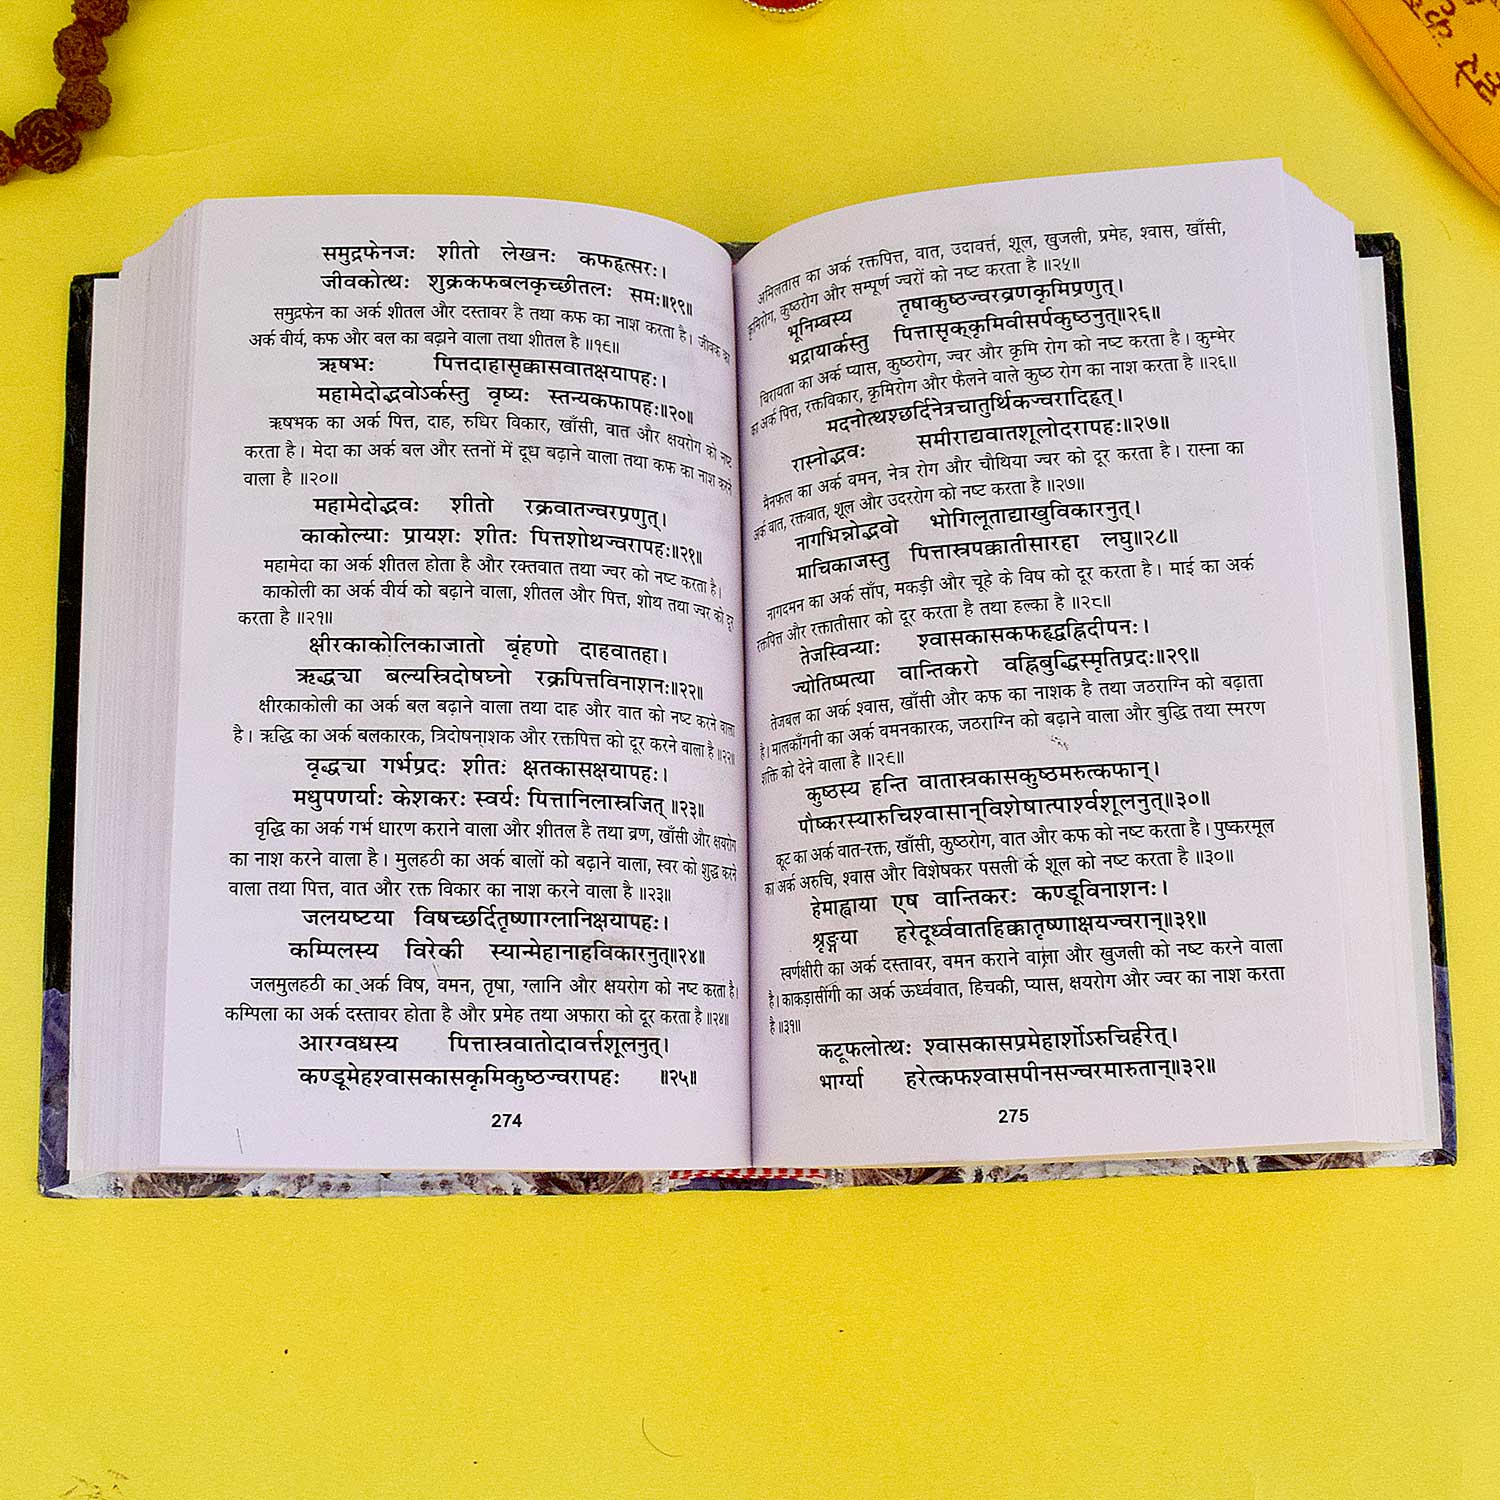 समुद्रफेनजः शीतो लेखनः कफहृत्सरः।
जीवकोत्थः शुक्रकफबलकृच्छीतलः समः॥१९॥
समुद्रफेन का अर्क शीतल और दस्तावर है तथा कफ का नाश करता है। जीवक का
अर्क वीर्य, कफ और बल का बढ़ाने वाला तथा शीतल है॥१९॥
ऋषभः पित्तदाहासृक्कासवातक्षयापहः।
महामेदोद्भवोऽर्कस्तु वृष्यः स्तन्यकफापहः॥२०॥
ऋषभक का अर्क पित्त, दाह, रुधिर विकार, खाँसी, वात और क्षयरोग को नष्ट
करता है। मेदा का अर्क बल और स्तनों में दूध बढ़ाने वाला तथा कफ का नाश करने
वाला है॥२०॥
महामेदोद्भवः शीतो रक्रवातज्वरप्रणुत्।
काकोल्याः प्रायशः शीतः पित्तशोथज्वरापहः॥२१॥
महामेदा का अर्क शीतल होता है और रक्तवात तथा ज्वर को नष्ट करता है।
काकोली का अर्क वीर्य को बढ़ाने वाला, शीतल और पित्त, शोथ तथा ज्वर को दूर
करता है॥२१॥
क्षीरकाकोलिकाजातो बृंहणो दाहवातहा।
ऋद्धच्या बल्यस्त्रिदोषघ्नो रक्रपित्तविनाशनः॥२२॥
क्षीरकाकोली का अर्क बल बढ़ाने वाला तथा दाह और वात को नष्ट करने वाला
है। ऋद्धि का अर्क बलकारक, त्रिदोषनाशक और रक्तपित्त को दूर करने वाला है॥२२॥
वृद्धच्या गर्भप्रदः शीतः क्षतकासक्षयापहः।
मधुपणर्याः केशकरः स्वर्यः पित्तानिलास्त्रजित्॥२३॥
वृद्धि का अर्क गर्भ धारण कराने वाला और शीतल है तथा व्रण, खाँसी और क्षयरोग
का नाश करने वाला है। मुलहठी का अर्क बालों को बढ़ाने वाला, स्वर को शुद्ध करने
वाला तथा पित्त, वात और रक्त विकार का नाश करने वाला है॥२३॥
जलयष्टया विषच्छर्दितृष्णाग्लानिक्षयापहः।
कम्पिलस्य विरेकी स्यान्मेहानाहविकारनुत्॥२४॥
जलमुलहठी का अर्क विष, वमन, तृषा, ग्लानि और क्षयरोग को नष्ट करता है।
कम्पिला का अर्क दस्तावर होता है और प्रमेह तथा अफारा को दूर करता है॥२४॥
आरग्वधस्य पित्तास्त्रवातोदावर्त्तशूलनुत्।
कण्डूमेहश्वासकासकृमिकुष्ठज्वरापहः ॥२५॥
274
अमिलतास का अर्क रक्तपित्त, वात, उदावर्त्त, शूल, खुजली, प्रमेह, श्वास, खाँसी,
कृमिरोग, कुष्ठरोग और सम्पूर्ण ज्वरों को नष्ट करता है॥२५॥
भूनिम्बस्य तृषाकुष्ठज्वरव्रणकृमिप्रणुत्।
भद्रायार्कस्तु पित्तासृक्कृमिवीसर्पकुष्ठनुत्॥२६॥
चिरायता का अर्क प्यास, कुष्ठरोग, ज्वर और कृमि रोग को नष्ट करता है। कुम्भेर
का अर्क पित्त, रक्तविकार, कृमिरोग और फैलने वाले कुष्ठ रोग का नाश करता है॥२६॥
मदनोत्थश्छर्दिनेत्रचातुर्थिकज्वरादिहृत्।
रास्नोद्भवः समीराद्यवातशूलोदरापहः॥२७॥
मैनफल का अर्क वमन, नेत्र रोग और चौथिया ज्वर को दूर करता है। रास्ना का
अर्क वात, रक्तवात, शूल और उदररोग को नष्ट करता है॥२७॥
नागभिन्नोद्भवो भोगिलूताद्याखुविकारनुत्।
माचिकाजस्तु पित्तास्त्रपक्कातीसारहा लघु॥२८॥
नागदमन का अर्क साँप, मकड़ी और चूहे के विष को दूर करता है। माई का अर्क
रक्तपित्त और रक्तातीसार को दूर करता है तथा हल्का है॥२८॥
तेजस्विन्याः श्वासकासकफहृद्वह्निदीपनः।
ज्योतिष्मत्या वान्तिकरो वह्निबुद्धिस्मृतिप्रदः॥२९॥
तेजबल का अर्क श्वास, खाँसी और कफ का नाशक है तथा जठराग्नि को बढ़ाता
है। मालकाँगनी का अर्क वमनकारक, जठराग्नि को बढ़ाने वाला और बुद्धि तथा स्मरण
शक्ति को देने वाला है॥२९॥
कुष्ठस्य हन्ति वातास्त्रकासकुष्ठमरुत्कफान्।
पौष्करस्यारुचिश्वासान्विशेषात्पार्श्वशूलनुत्॥३०॥
कूट का अर्क वात-रक्त, खाँसी, कुष्ठरोग, वात और कफ को नष्ट करता है। पुष्करमूल
का अर्क अरुचि, श्वास और विशेषकर पसली के शूल को नष्ट करता है॥३०॥
हेमाह्वाया एष वान्तिकरः कण्डूविनाशनः।
श्रृङ्गया हरेदूर्ध्ववातहिक्कातृष्णाक्षयज्वरान्॥३१॥
स्वर्णक्षीरी का अर्क दस्तावर, वमन कराने वाला और खुजली को नष्ट करने वाला
है। काकड़ासींगी का अर्क ऊर्ध्ववात, हिचकी, प्यास, क्षयरोग और ज्वर का नाश करता
है॥३१॥
कटूफलोत्थः श्वासकासप्रमेहार्शोऽरुचिर्हरेत्।
भार्ग्या हरेत्कफश्वासपीनसज्वरमारुतान्॥३२॥
275